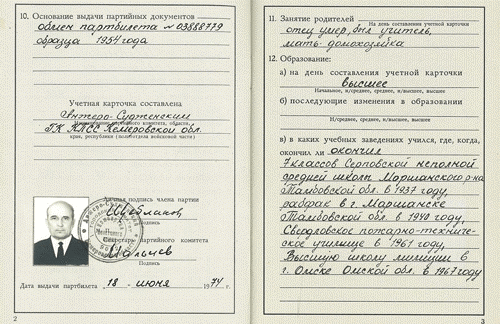 10. Основание выдачи партийных документов
обмен партбилета № 03888779
образца 1954 года
Учетная карточка составлена
Анжеро-Судженским
Наименование партийного комитета, области,
ГК КПСС Кемеровской обл.
края, республики (политотдела войсковой части)
Личная подпись члена партии
Подпись
Секретарь партийного комитета
Подпись
Дата выдачи партбилета 18 июня 1974 г.
2
11. Занятие родителей
На день составления учетной карточки
отец умер, был учитель,
мать-домохозяйка
12. Образование:
а) на день составления учетной карточки
высшее
Начальное, н/среднее, среднее, н/высшее, высшее
б) последующие изменения в образовании
Н/среднее, среднее, н/высшее, высшее
в) в каких учебных заведениях учился, где, когда,
окончил ли окончил
7 классов Серповской неполной
средней школы Моршанского р-на
Тамбовской обл. в 1937 году,
рабфак в г. Моршанске
Тамбовской обл. в 1940 году,
Свердловское пожарно-техниче-
ское училище в 1961 году,
Высшую школу милиции в
г. Омске Омской обл. в 1967 году
3